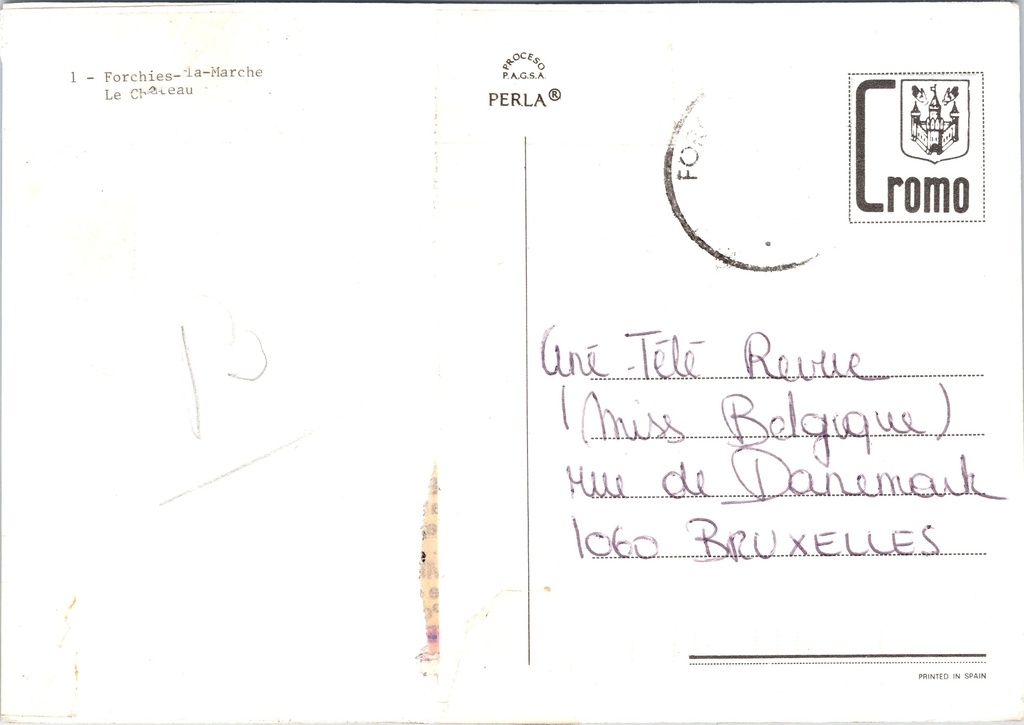 1 - Forchies-la-Marche
Le Château
PROCESO
P.A.G.S.A.
PERLA®
FOR
Cromo
Ciné-Télé Revue
(Miss Belgique)
rue de Danemark
1060 BRUXELLES
PRINTED IN SPAIN